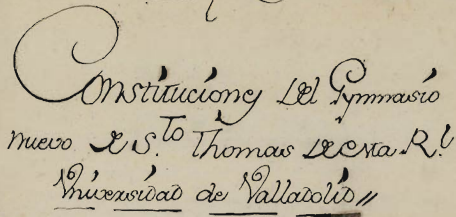 Constituciones del Gymnasio
nuevo de S.to Thomas de esta R.l
Vniversidad de Valladolid //